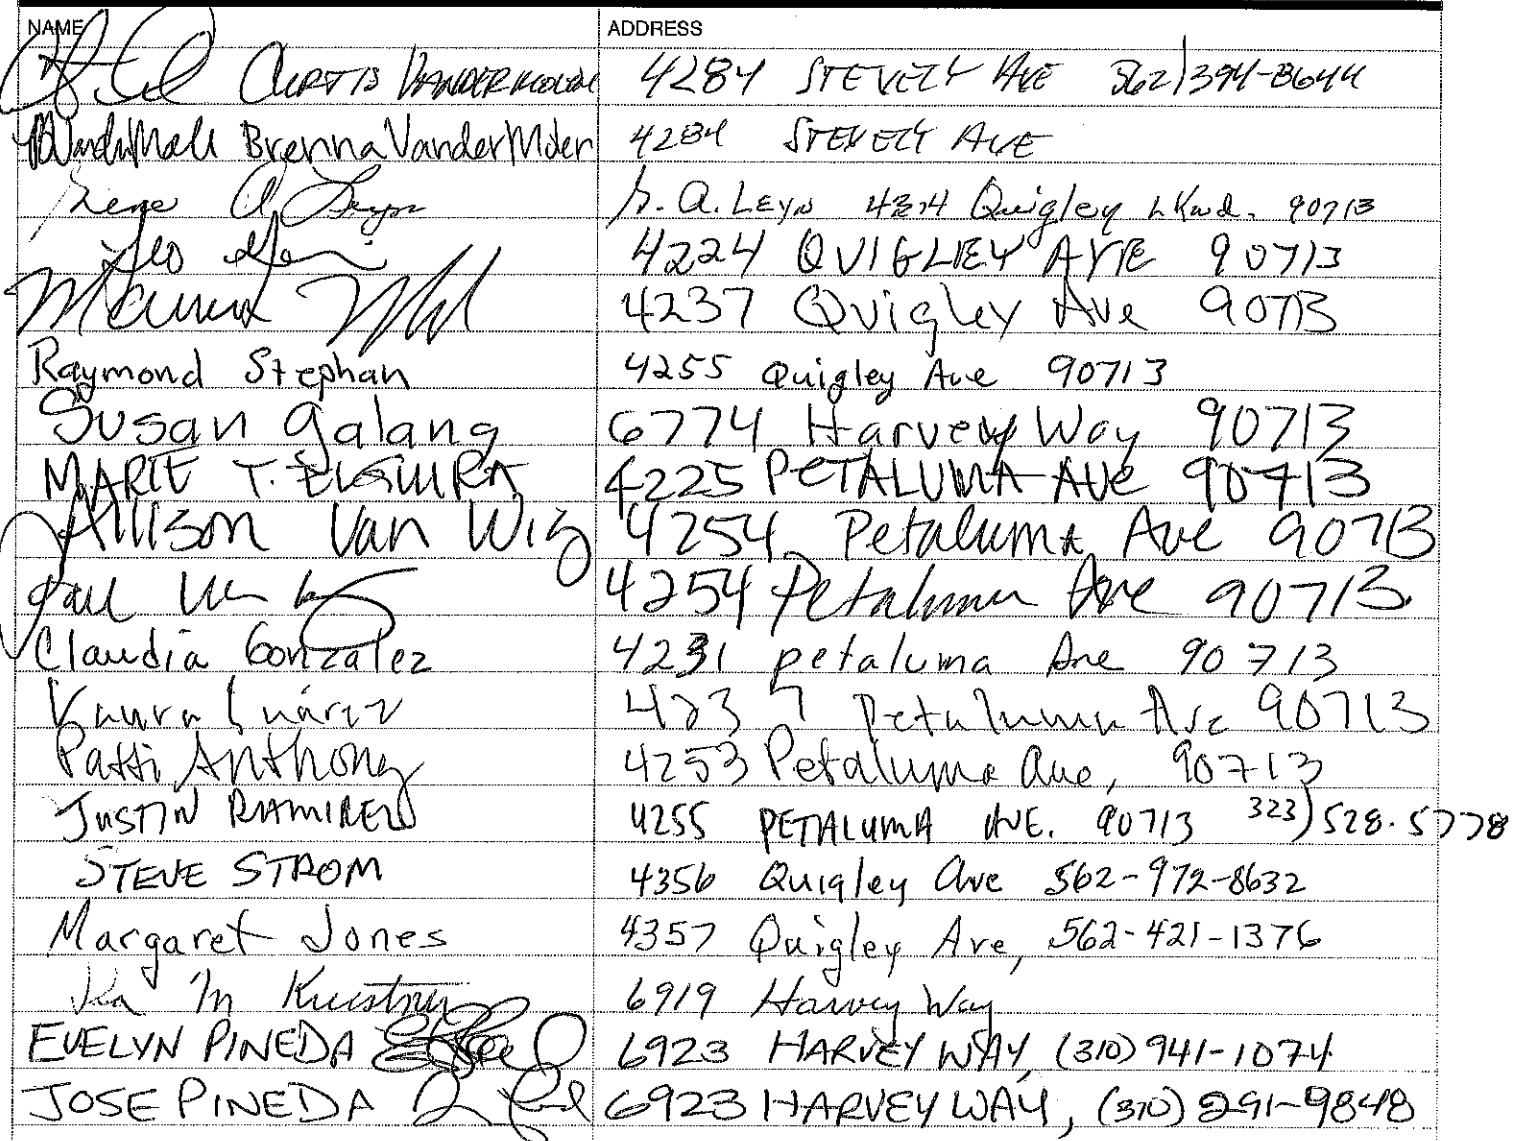 NAME ADDRESS
CURTIS VANDERMOLEN 4284 STEVELY AVE 562) 394-8644
Brenna VanderMolen 4284 STEVELY AVE
Gene A. Leyn G. A. LEyn Quigley Lkwd. 90713
Leo 4224 QUIGLEY AVE 90713
4237 Quigley Ave 90713
Raymond Stephan 4255 Quigley Ave 90713
Susan Galang 6774 Harvey Way 90713
MARIE T. 4225 PETALUMA AVE 90713
Allison Van Wig 4254 Petaluma Ave 90713
4254 Petaluma Ave 90713
Claudia Gonzalez 4231 petaluma Ave 90713
4237 Petaluma Ave 90713
Patti Anthony 4253 Petaluma Ave, 90713
JUSTIN RAMIREZ 4255 PETALUMA AVE. 90713 323) 528.5778
STEVE STROM 4356 Quigley Ave 562-972-8632
Margaret Jones 4357 Quigley Ave, 562-421-1376
M 6919 Harvey Way
EVELYN PINEDA 6923 HARVEY WAY, (310) 941-1074
JOSE PINEDA 6923 HARVEY WAY, (310) 291-9848